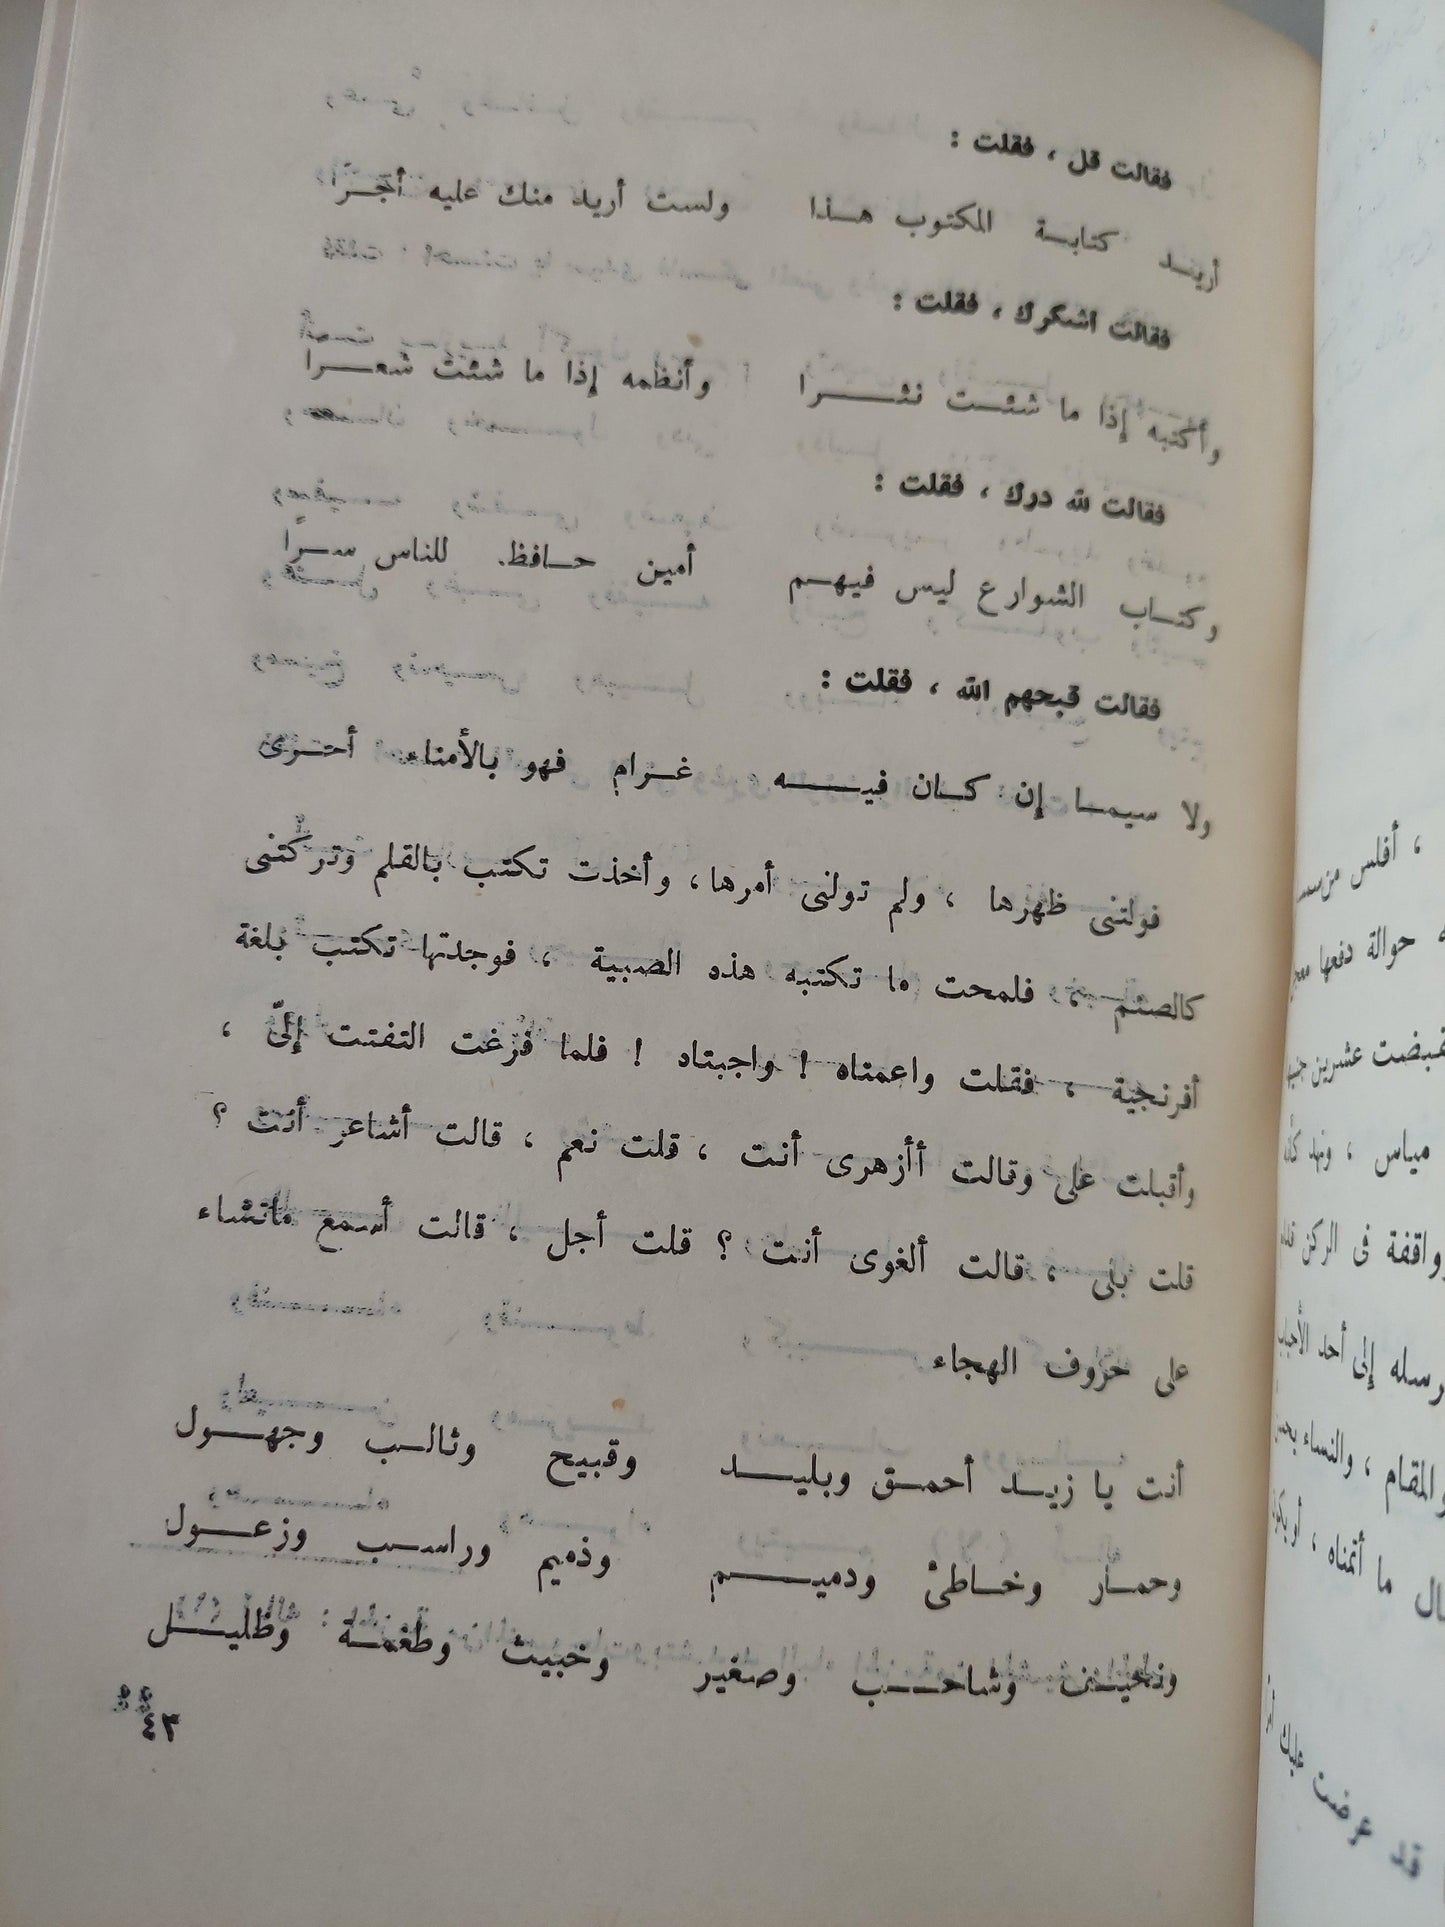 فقالت قل ، فقلت :
أريـد كتابـة المكتوب هـذا ولست أريد منك عليه أجـرا
فقالت اشكرك ، فقلت :
وأكتبه إذا ما شئـت نثـرا وأنظمه إذا ما شئت شعـرا
فقالت لله درك ، فقلت :
وكتـاب الشوارع ليس فيهـم أمين حـافظ للناس سـرًا
فقالت قبحهم الله ، فقلت :
ولا سيمـا إن كـان فيـه غـرام فهو بالأمناء أحـرى
فولتنى ظهرها ، ولم تولنى أمرها ، وأخذت تكتب بالقلم وتركتنى
كالصنم ، فلمحت ما تكتبه هذه الصبية ، فوجدتها تكتب بلغة
أفرنجية ، فقلت واعمتاه ! واجبتاه ! فلما فرغت التفتت إلىّ ،
وأقبلت على وقالت أأزهرى أنت ، قلت نعم ، قالت أشاعر أنت ؟
قلت بلى ، قالت ألغوى أنت ؟ قلت أجل ، قالت أسمع ماتشاء
على حروف الهجاء
أنت يا زيـد أحمـق وبليـد وقبيح وثالـب وجهـول
وحمـار وخـاطئ ودميـم وذميم وراسـب وزعـول
وشاحـب وصغير وخبيث وطغمـة وظليـل
٤٣
، أفلس من
حوالة دفعها
عشرين
مياس ، ونهد
واقفة فى الركن
إلى أحد
والمقام ، والنساء
ما أتمناه ،
قد عرضت عليك